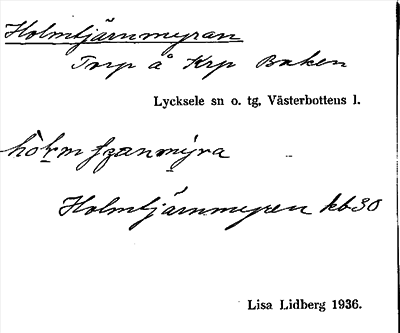 Holmtjärnmyran
Torp å Krp Baken
Lycksele sn o. tg, Västerbottens l.
Holmtjärnmyren kb 30
Lisa Lidberg 1936.